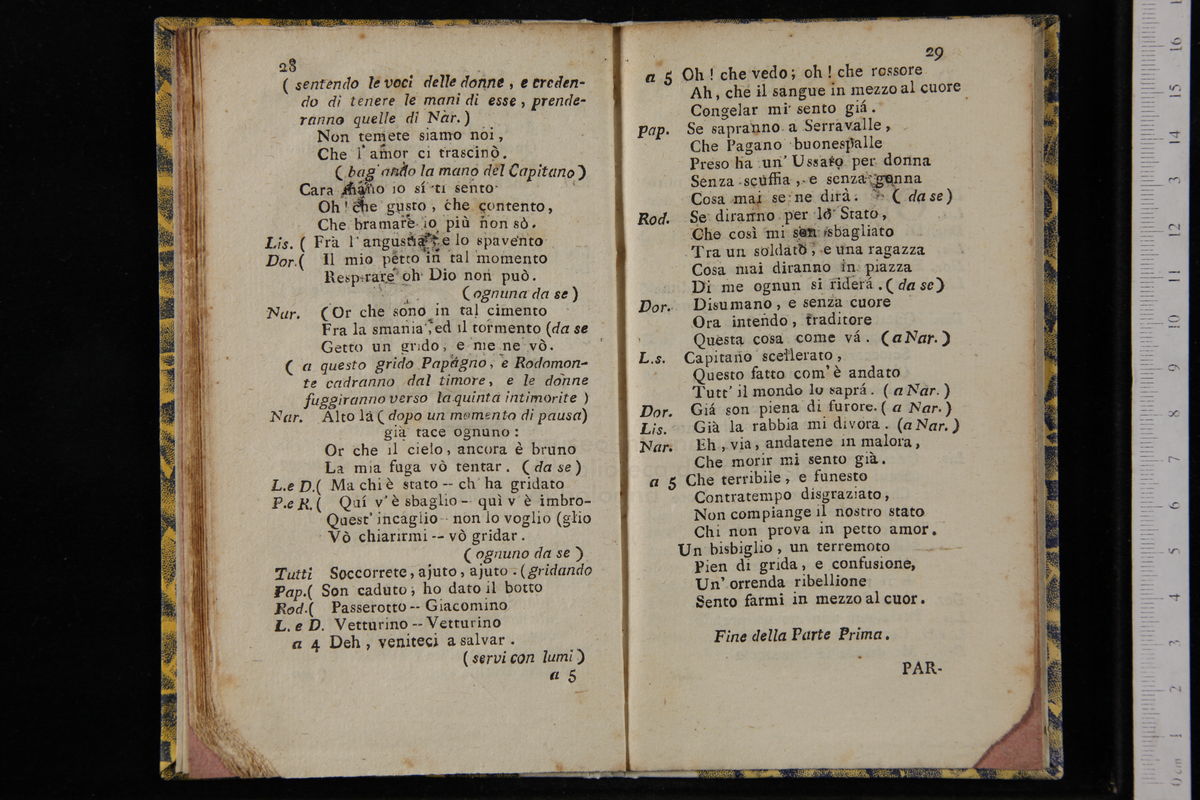 28
( sentendo le voci delle donne , e creden-
do di tenere le mani di esse , prende-
ranno quelle di Nar. )
Non temete siamo noi ,
Che l'amor ci trascinò.
( bag ando la mano del Capitano )
Cara mano io sí ti sento
Oh ! che gusto , che contento ,
Che bramare io più non sò .
Lis. ( Frà l'angustia , e lo spavento
Dor.( Il mio petto in tal momento
Resp rare oh Dio non può.
( ognuna da se )
Nar. ( Or che sono in tal cimento
Fra la smania , ed il tormento (da se
Getto un grido , e me ne vò.
( a questo grido Papagno , e Rodomon-
te cadranno dal timore , e le donne
fuggiranno verso la quinta intimorite )
Nar. Alto là ( dopo un momento di pausa)
già tace ognuno :
Or che il cielo , ancora è bruno
La mia fuga vò tentar . ( da se )
L. e D.( Ma chi è stato -- ch' ha gridato
P. e R. ( Quí v'è sbaglio - quì v è imbro-
Quest' incaglio - non lo voglio (glio
Vò chiarirmi -- vò gridar .
( ognuno da se )
Tutti Soccorrete , ajuto , ajuto . ( gridando
Pap.( Son caduto , ho dato il botto
Rod.( Passerotto -- Giacomino
L. e D. Vetturino -- Vetturino
a 4 Deh , veniteci a salvar .
( servi con lumi )
a 5
29
a 5 Oh ! che vedo ; oh ! che rossore
Ah , che il sangue in mezzo al cuore
Congelar mi sento giá .
Pap. Se sapranno a Serravalle ,
Che Pagano buonespalle
Preso ha un' Ussaro per donna
Senza scuffia , e senza gonna
Cosa mai se ne dirà . ( da se )
Rod. Se diranno per lo Stato ,
Che così mi son sbagliato
Tra un soldato , e una ragazza
Cosa mai diranno in piazza
Di me ognun si riderá . ( da se )
Dor. Disumano , e senza cuore
Ora intendo , traditore
Questa cosa come vá . ( a Nar. )
L.s. Capitano scellerato ,
Questo fatto com'è andato
Tutt' il mondo lo saprá . ( a Nar. )
Dor. Giá son piena di furore. ( a Nar. )
Lis. Già la rabbia mi divora . (a Nar. )
Nar. Eh , via , andatene in malora ,
Che morir mi sento già .
a 5 Che terribile , e funesto
Contratempo disgraziato ,
Non compiange il nostro stato
Chi non prova in petto amor .
Un bisbiglio , un terremoto
Pien di grida , e confusione,
Un' orrenda ribellione
Sento farmi in mezzo al cuor .
Fine della Parte Prima .
PAR-
0 cm 1 2 3 4 5 6 7 8 9 10 11 12 13 14 15 16